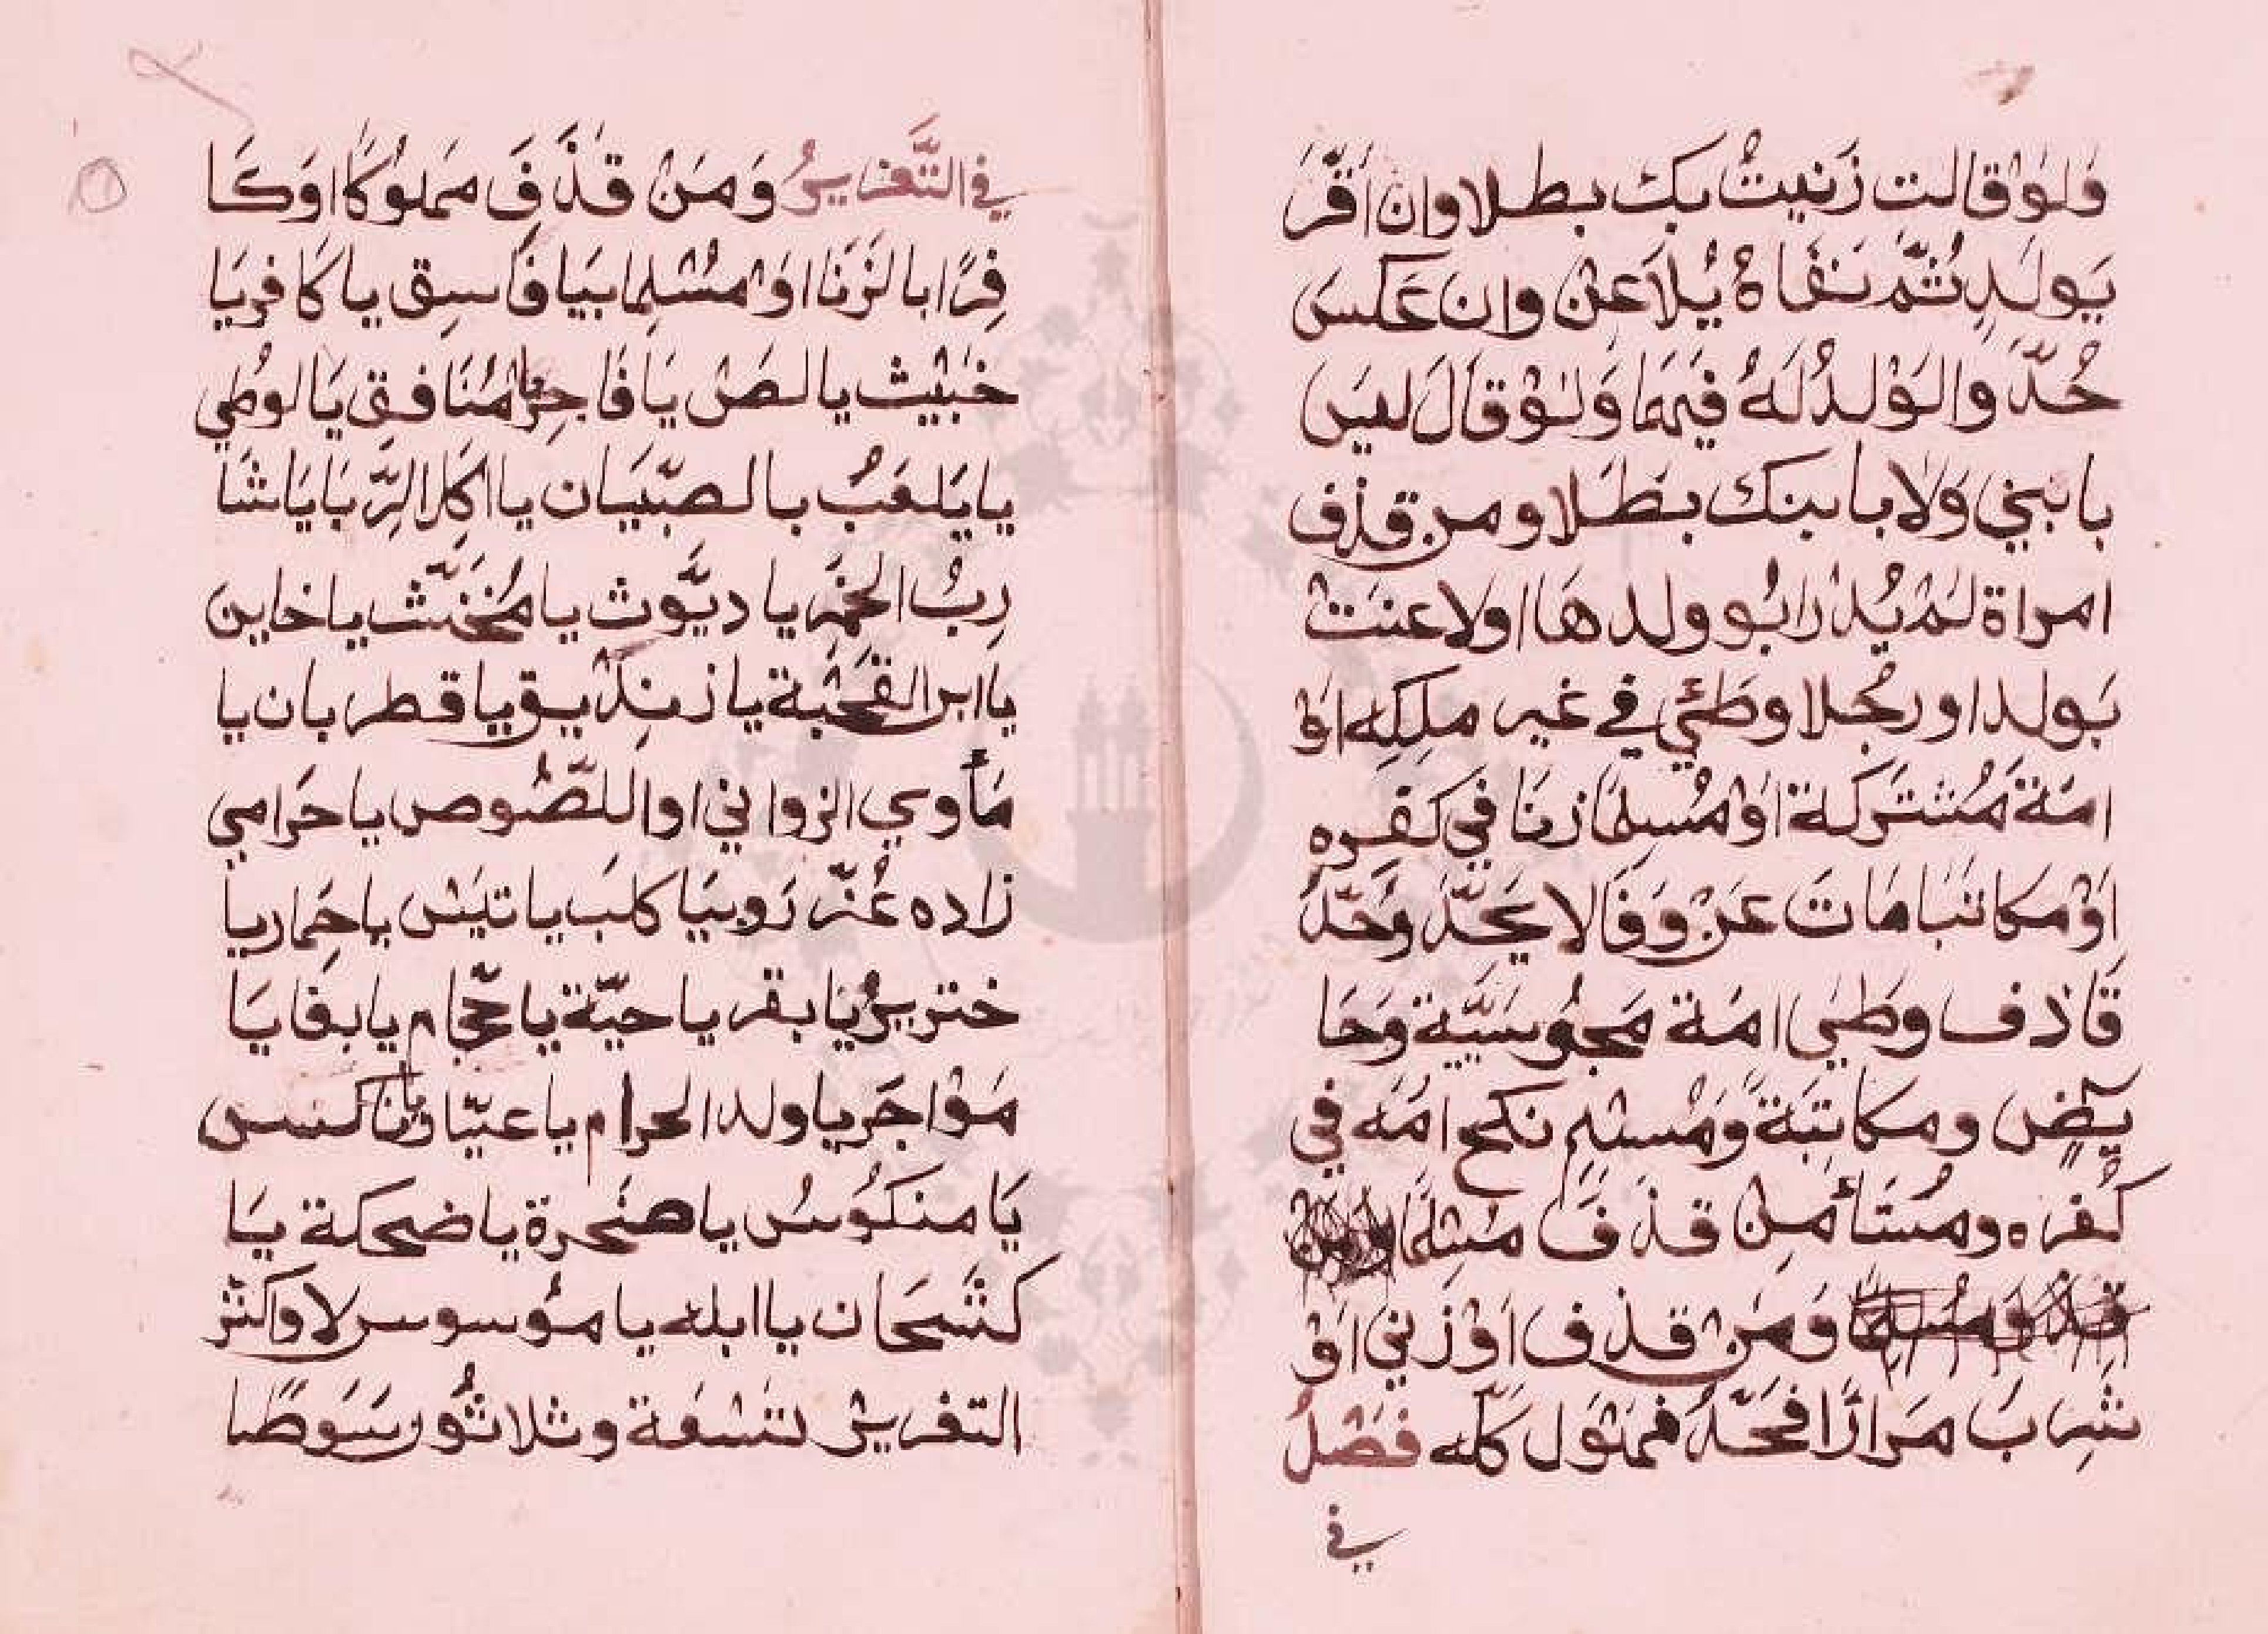 فَلوْ قالت زَنيتُ بك بطلا وان اَقرَّ
بَولَدٍ ثمّ نَفَاهُ يُلاَعِنْ وان عَكسَ
حُدَّ والوَلدُ لَهُ فيهَما وَلوْ قَالَ ليَس
بابني وَلا بابنك بطَلا ومن قذف
امراة لمْ يُدْرَ ابُو ولدهَا او لاعنتْ
بَولد او رجُلا وطئي في غير ملكِهِ اوْ
امَةَ مُشتَركة اوْ مُسِلمًا زنَا في كفره
اَوْ مكاتبَا مَاتَ عَنْ وَفَا لا يحَدّ وَحَدّ
قَاذف وطئ امَة مَجُوسَيّة وَحَا
يضٍ ومكاتبَة وَمُسْلِمٍ نكح امَه في
كُفره ومُستَأمِنْ قذفَ مسْلِمًا
وَمَنْ قذف اَوْ زني اَوْ
شرِبَ مَرارًا فحَدَّ فهَوْ لكلّه فصْلُ
في
في التَّعزيرُ وَمَنْ قذَفَ مَملوُكًا اوَ كَا
فِرًا بالزَنَا اوْ مسْلِما بيَا فَاسِق يا كَافر يَا
خبيْث يا لصْ يَا فَاجرُ يا مُنَافِق يَا لوُطي
يا يَلعَبُ بالصبيَان يا اكَل الرِّبَا يَا شَا
ربُ الخمَر يا ديّوث يا مُخنّث يا خاين
يا ابن القحْبَة يا زنِدْيق يا قطربان يا
مَأوي الزواني او اللصُّوص يا حَرامي
زاده عُزّروبيَا كلبَ يا تيَسْ يا حِمار يا
خنزيرُ يَا بقر يا حيّة يا حجّام يا بغا يَا
مَوْاجَر يا ولد الحرام يا عيّار يا ناكس
يَا منكوُسُ يا صحَرة يا ضحكة يَا
كشَحَان يا ابله يا مُوَسوس لا واكثر
التعزيرْ تسْعَة وثلاثوُن سَوطًا